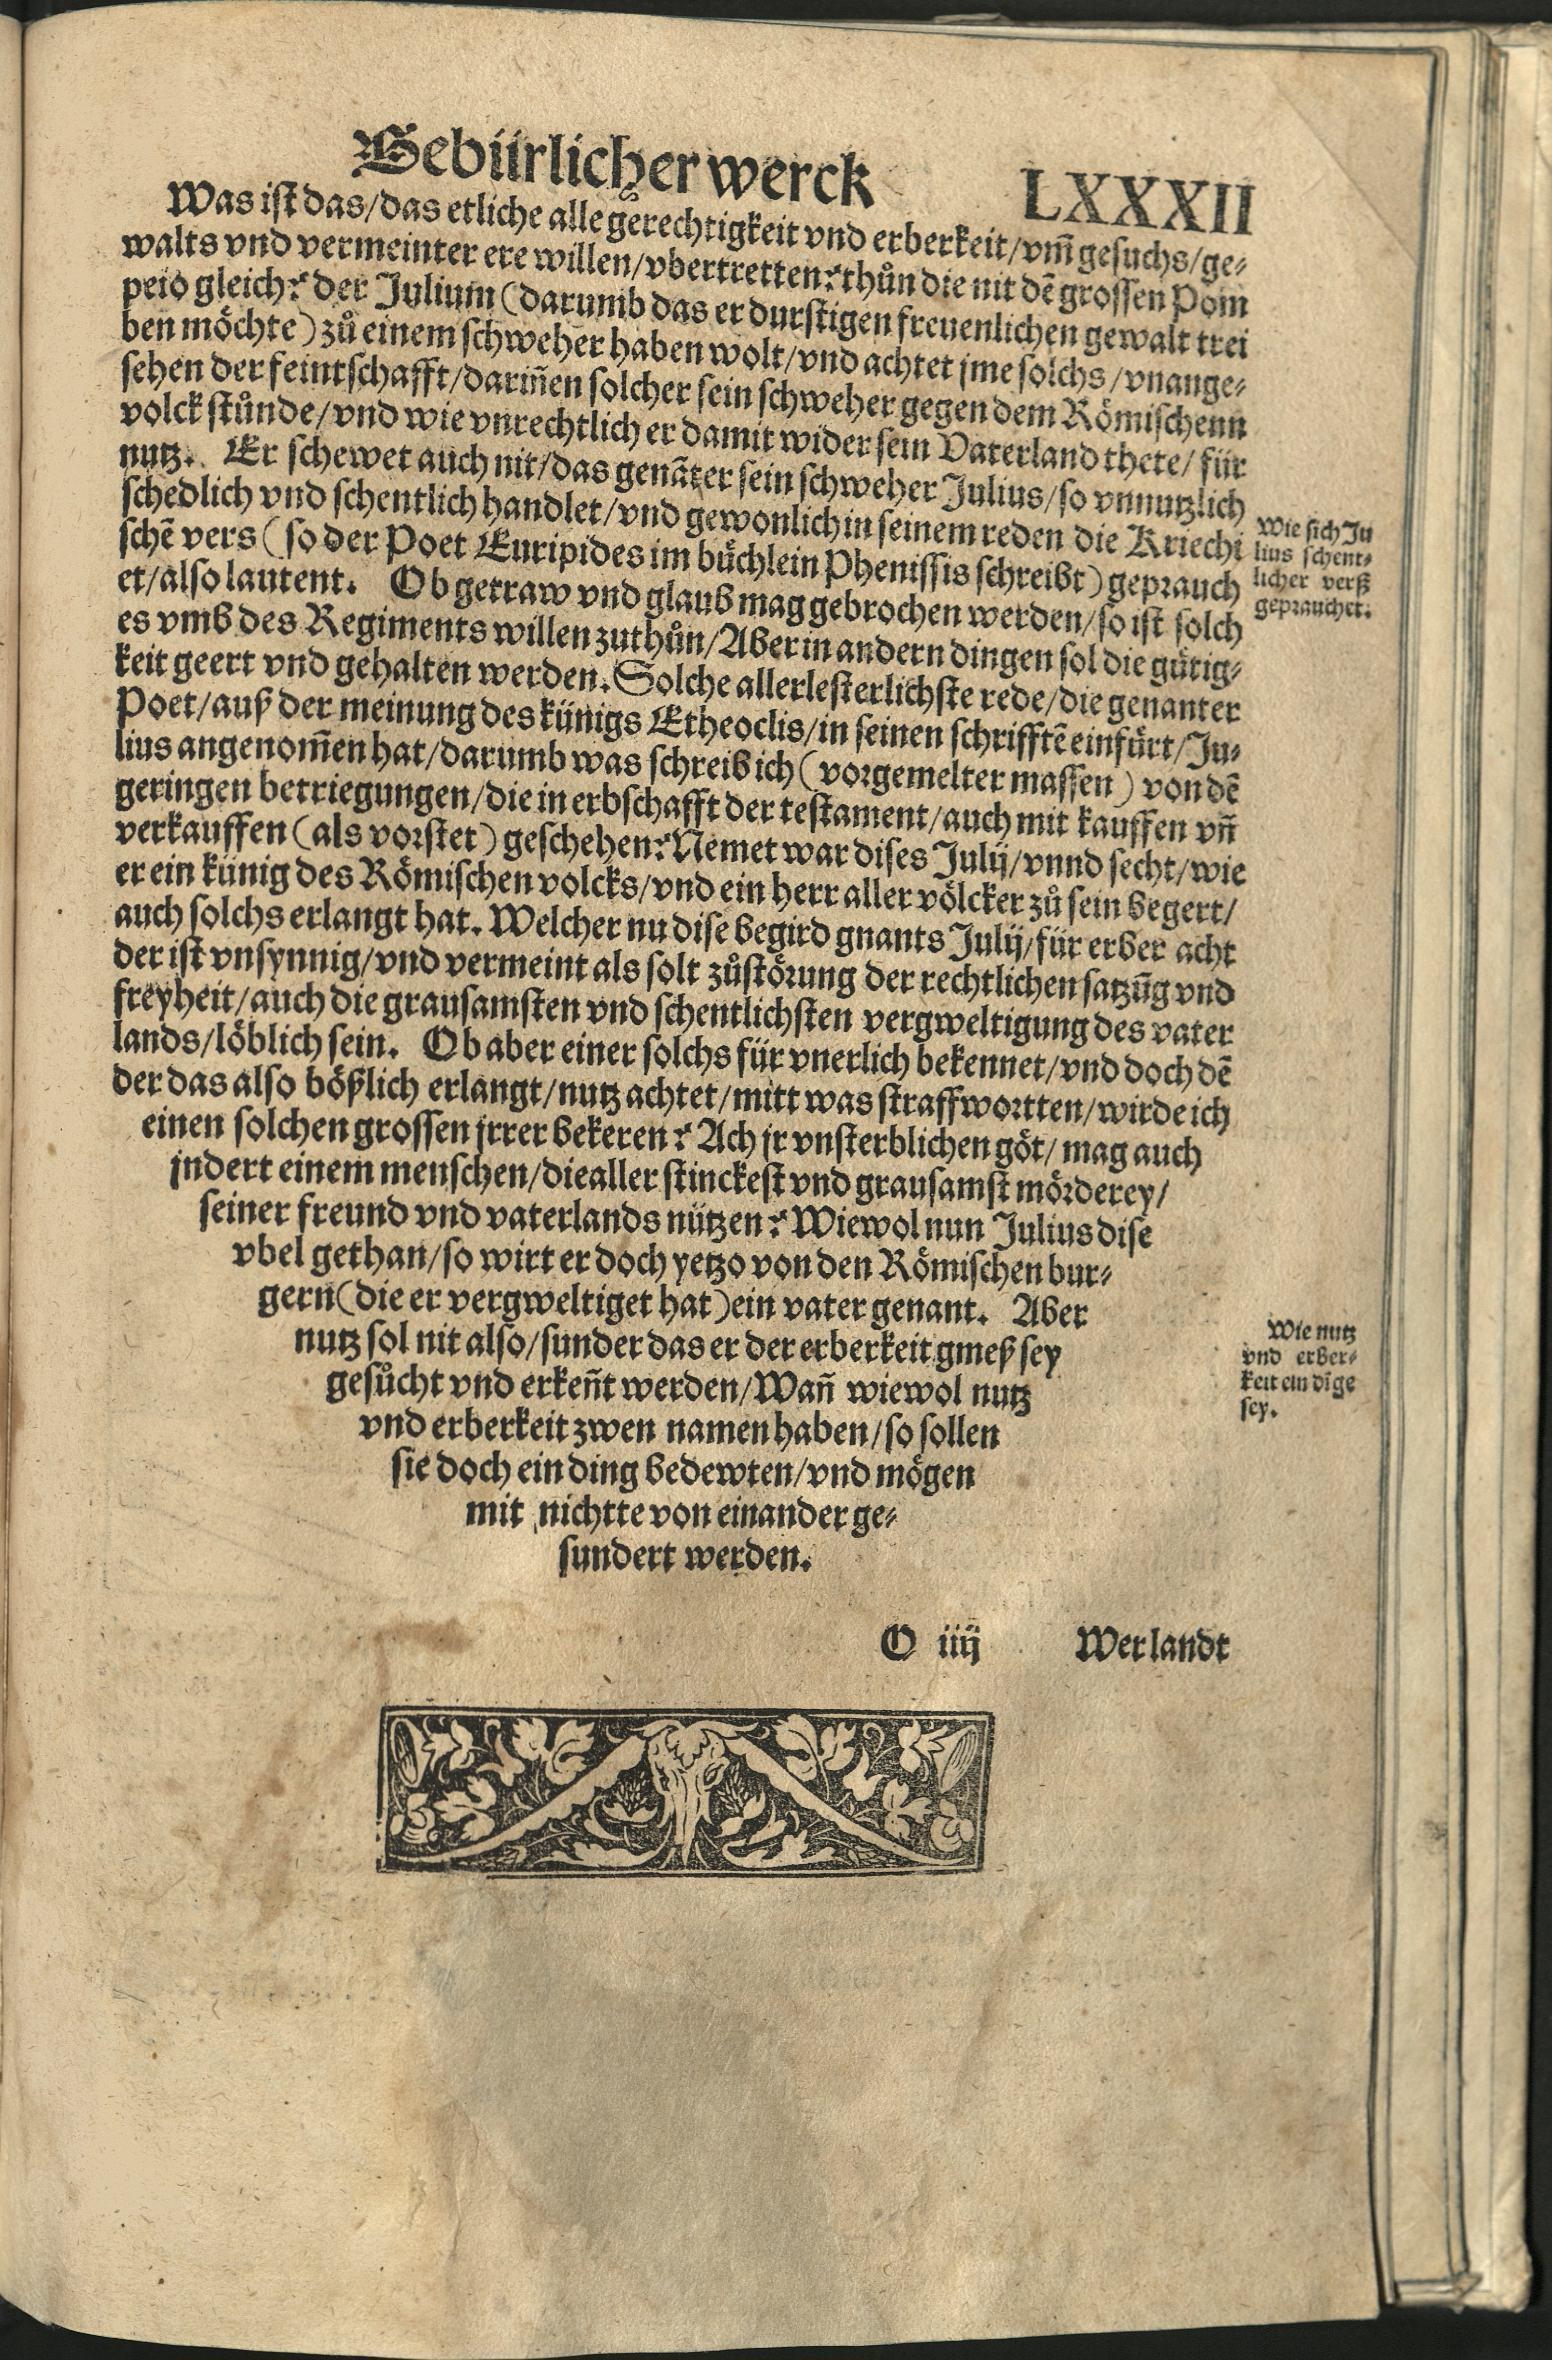 Gebürlicher werck LXXXII
Was ist das/das etliche alle gerechtigkeit vnd erberkeit/vm̃ gesuchs/ge⸗
walts vnd vermeinter ere willen/vbertretten? thůn die nit dẽ grossen Pom
peio gleich? der Julium (darumb das er durstigen freuenlichen gewalt trei
ben möchte) zů einem schweher haben wolt/vnd achtet jme solchs/vnange⸗
sehen der feintschafft/dariñen solcher sein schweher gegen dem Römischenn
volck stůnde/vnd wie vnrechtlich er damit wider sein Vaterland thete/für
nutz. Er schewet auch nit/das genãter sein schweher Julius/so vnnutzlich
schedlich vnd schentlich handlet/vnd gewonlich in seinem reden die Kriechi
schẽ vers (so der Poet Euripides im büchlein Phenissis schreibt) geprauch
et/also lautent. Ob getraw vnd glaub mag gebrochen werden/so ist solch
es vmb des Regiments willen zuthůn/Aber in andern dingen sol die gütig⸗
keit geert vnd gehalten werden. Solche allerlesterlichste rede/die genanter
Poet/auß der meinung des künigs Etheoclis/in seinen schrifftẽ einfürt/Ju⸗
lius angenom̃en hat/darumb was schreib ich (vorgemelter massen) von dẽ
geringen betriegungen/die in erbschafft der testament/auch mit kauffen vñ
verkauffen (als vorstet) geschehen? Nemet war dises Julij/vnnd secht/wie
er ein künig des Römischen volcks/vnd ein herr aller völcker zů sein begert/
auch solchs erlangt hat. Welcher nu dise begird gnants Julij/für erber acht
der ist vnsynnig/vnd vermeint als solt zůstörung der rechtlichen satzũg vnd
freyheit/auch die grausamsten vnd schentlichsten vergweltigung des vater
lands/löblich sein. Ob aber einer solchs für vnerlich bekennet/vnd doch dẽ
der das also bößlich erlangt/nutz achtet/mitt was straffwortten/wirde ich
einen solchen grossen jrrer bekeren? Ach jr vnsterblichen göt/mag auch
jndert einem menschen/die aller stinckest vnd grausamst mörderey/
seiner freund vnd vaterlands nützen? Wiewol nun Julius dise
vbel gethan/so wirt er doch yetzo von den Römischen bur⸗
gern (die er vergweltiget hat) ein vater genant. Aber
nutz sol nit also/sunder das er der erberkeit gmeß sey
gesůcht vnd erkeñt werden/Wañ wiewol nutz
vnd erberkeit zwen namen haben/so sollen
sie doch ein ding bedewten/vnd mögen
mit nichtte von einander ge⸗
sundert werden.
Wie sich Ju
lius schent⸗
licher verß
geprauchet.
Wie nutz
vnd erber⸗
keit ein dĩge
sey.
O iiij Wer landt